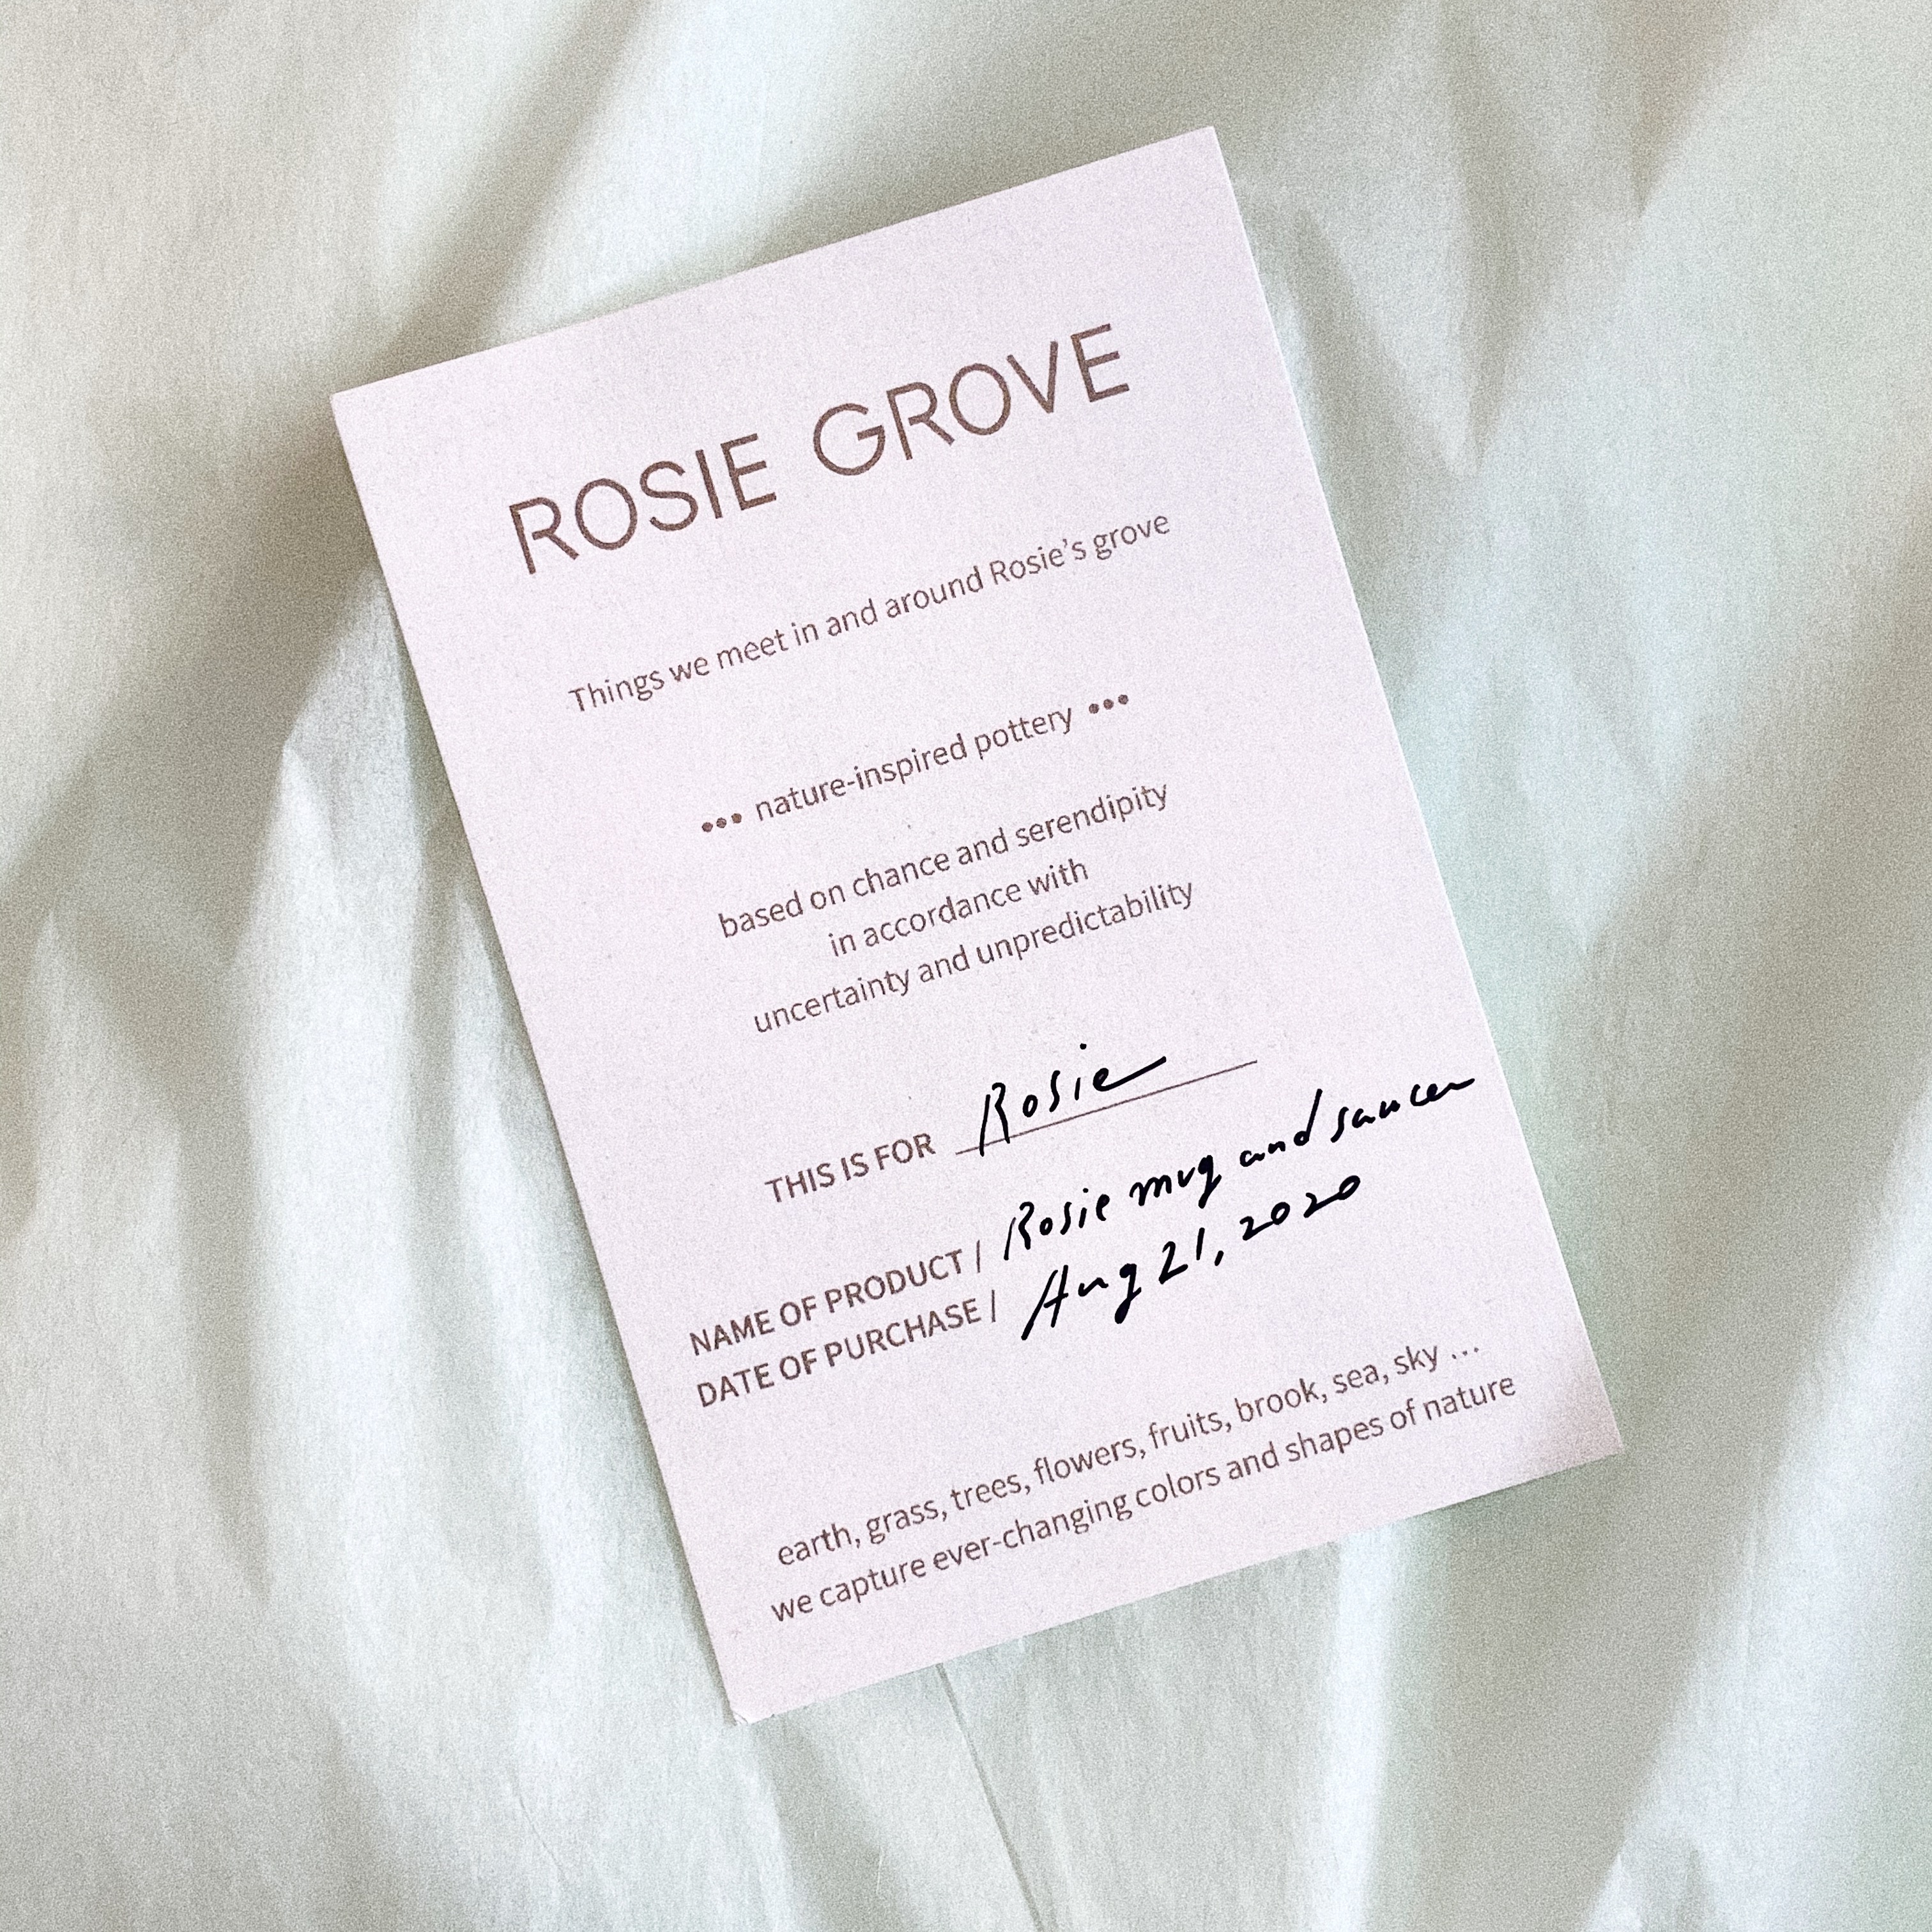 ROSIE GROVE
Things we meet in and around Rosie's grove
••• nature-inspired pottery •••
based on chance and serendipity
in accordance with
uncertainty and unpredictability
THIS IS FOR Rosie
NAME OF PRODUCT / Rosie mug and saucer
DATE OF PURCHASE / Aug 21, 2020
earth, grass, trees, flowers, fruits, brook, sea, sky ...
we capture ever-changing colors and shapes of nature